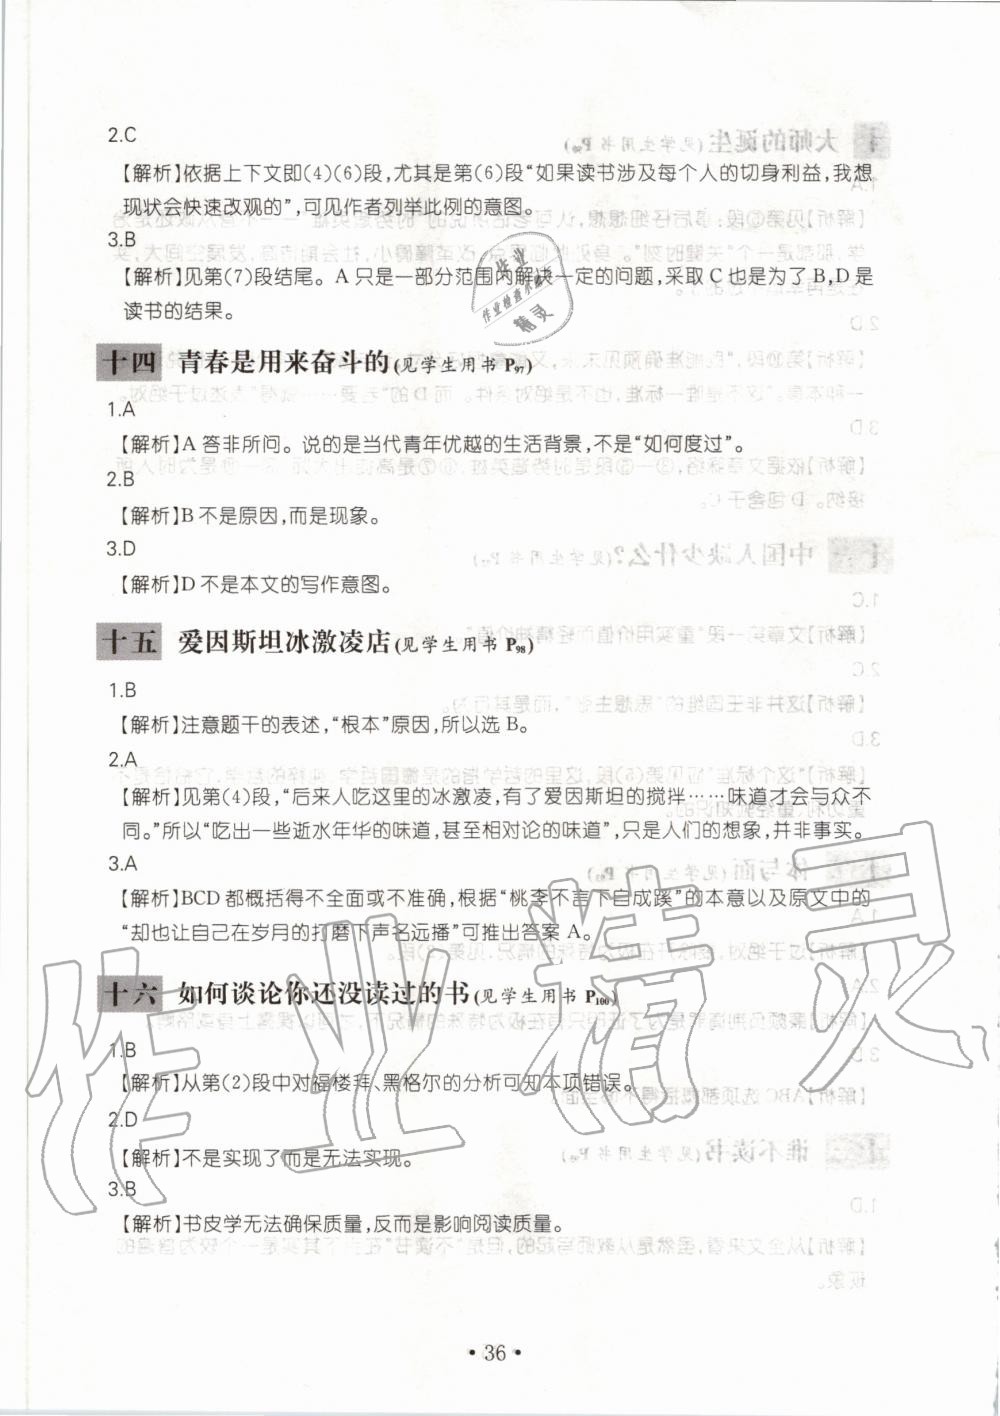 2.C
【解析】依据上下文即(4)(6)段，尤其是第(6)段“如果读书涉及每个人的切身利益，我想
现状会快速改观的”，可见作者列举此例的意图。
3.B
【解析】见第(7)段结尾。A 只是一部分范围内解决一定的问题，采取 C 也是为了 B，D 是
读书的结果。
十四 青春是用来奋斗的(见学生用书 P97)
1.A
【解析】A 答非所问。说的是当代青年优越的生活背景，不是“如何度过”。
2.B
【解析】B 不是原因，而是现象。
3.D
【解析】D 不是本文的写作意图。
十五 爱因斯坦冰激凌店(见学生用书 P98)
1.B
【解析】注意题干的表述，“根本”原因，所以选 B。
2.A
【解析】见第(4)段，“后来人吃这里的冰激凌，有了爱因斯坦的搅拌……味道才会与众不
同。”所以“吃出一些逝水年华的味道，甚至相对论的味道”，只是人们的想象，并非事实。
3.A
【解析】BCD 都概括得不全面或不准确，根据“桃李不言下自成蹊”的本意以及原文中的
“却也让自己在岁月的打磨下声名远播”可推出答案 A。
十六 如何谈论你还没读过的书(见学生用书 P100)
1.B
【解析】从第(2)段中对福楼拜、黑格尔的分析可知本项错误。
2.D
【解析】不是实现了而是无法实现。
3.B
【解析】书皮学无法确保质量，反而是影响阅读质量。
• 36 •
作业精灵
作业
作业检查小
精灵